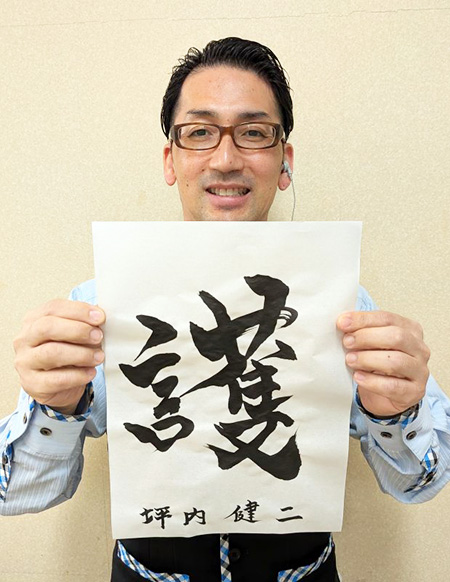 護
坪内健二